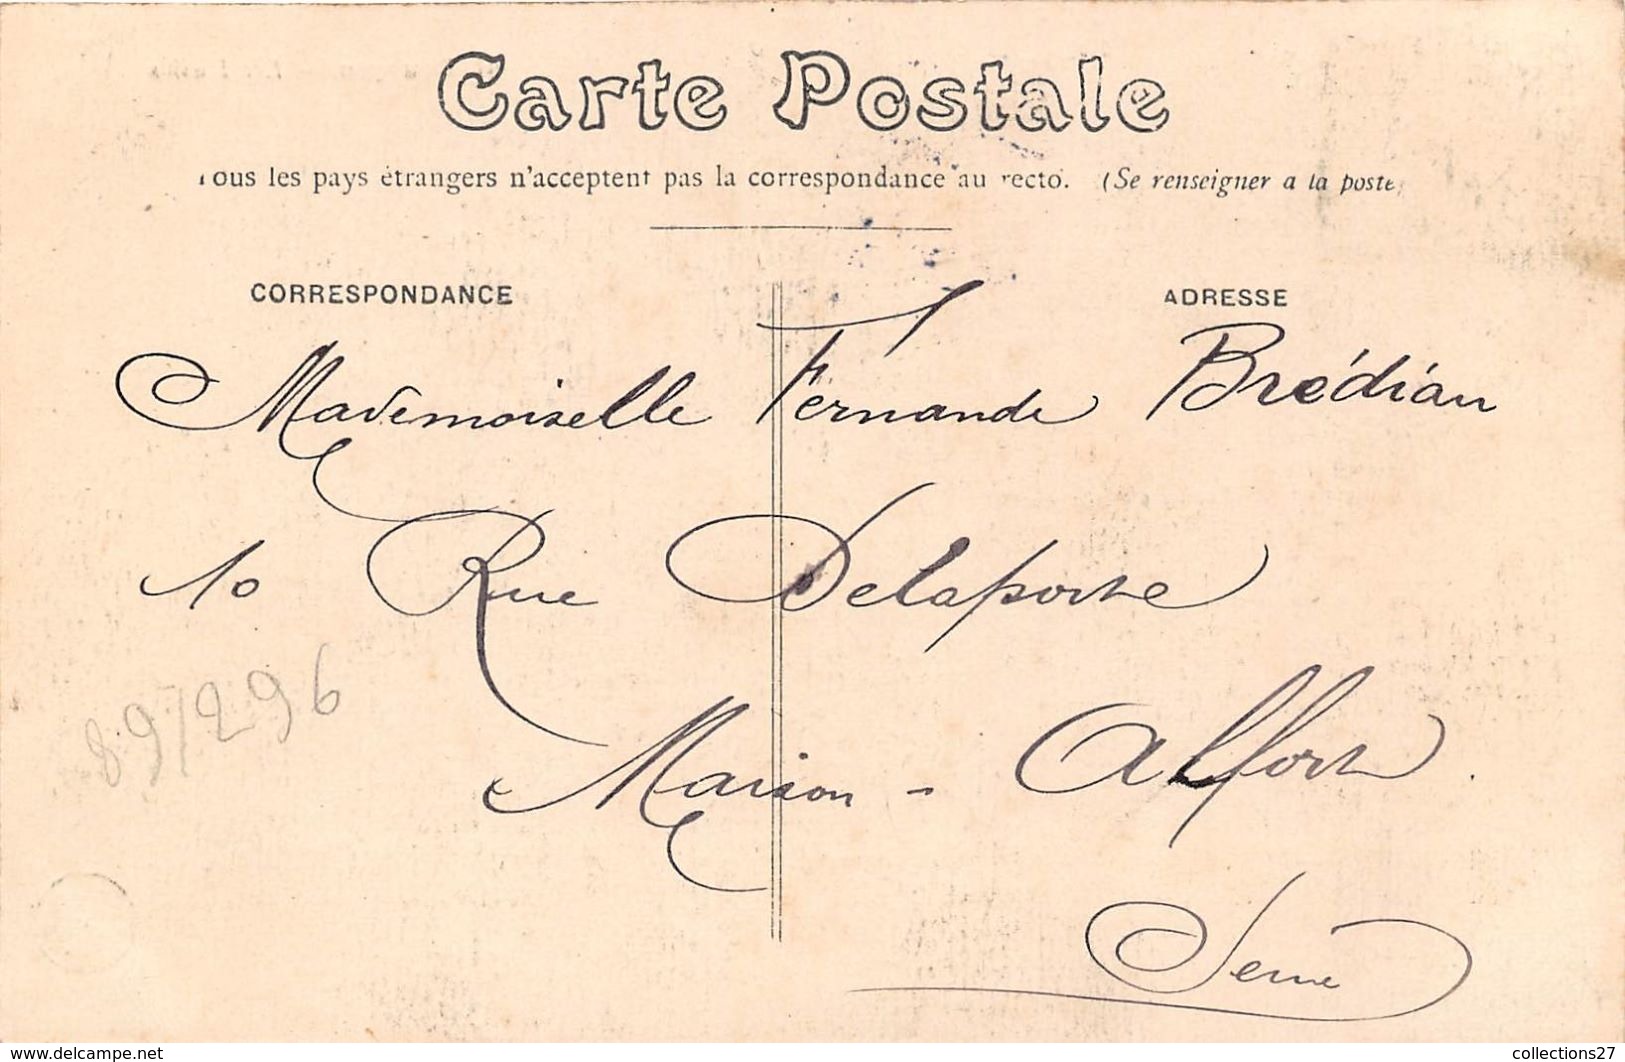 Carte Postale
Tous les pays étrangers n'acceptent pas la correspondance au recto. (Se renseigner a la poste)
CORRESPONDANCE
ADRESSE
Mademoiselle Fernande Brédian
10 Rue Delaporte
Maison - Alfort.
Seine
89/296
www.delcampe.net
collections27